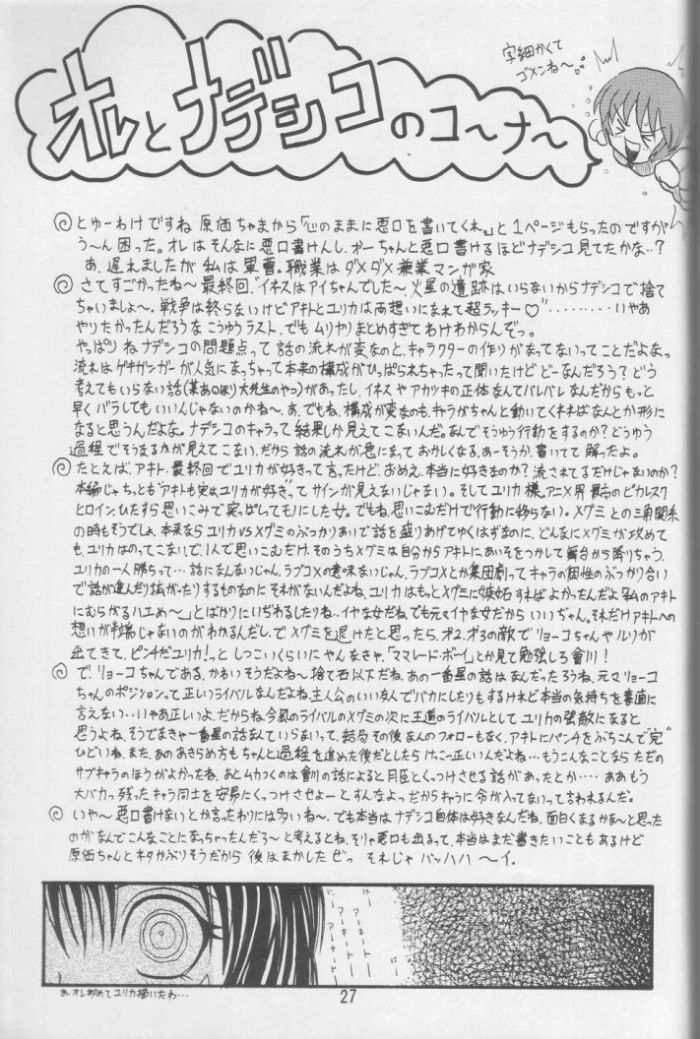 字細かくて
ゴメンね〜。。
オレとナデシコのコ〜ナ〜
とゆーわけですね 原価ちゃまから「心のままに悪口を書いてくれ。」と1ページもらったのですが
う〜ん困った。オレはそんなに悪口書けんし、かーちゃんと悪口書けるほどナデシコ見てたかな‥?
あ、遅れましたが私は軍曹。職業はダメダメ兼業マンガ家
さてすごかったね〜最終回、「イネスはアイちゃんでした〜火星の遺跡はいらないからナデシコで捨て
ちゃいましょ〜、戦争は終らないけどアキトとユリカは両想いになれて超ラッキー♡"‥‥‥‥いやあ
やりたかったんだろうな こうゆうラスト、でもムリヤリまとめすぎてわけわからんぞっ。
やっぱりねナデシコの問題点って話の流れが変なのと、キャラクターの作りがなってないってことだよな。
流れはゲキガンガーが人気になっちゃって本来の構成がひっぱられちゃったって聞いたけどどーなんだろう?どう
考えてもいらない話(某あ○ほり大先生のやつ)があったし、イネスやアカツキの正体なんてバレバレなんだからもっと
早くバラしてもいいんじゃないのかね〜あ、でもね、構成が変なのも、キャラがちゃんと動いてくれればなんとか形に
なると思うんだよな。ナデシコのキャラって結果しか見えてこないんだ。なんでそうゆう行動をするのか?どうゆう
過程でそうなるかが見えてこない、だから話の流れが急になっておかしくなる、あーそうか、書いてて解ったよ。
たとえば、アキト、最終回でユリカが好きって言ったけど、おめえ、本当に好きなのか?流されてるだけじゃないのか?
本編じゃちっとも"アキトも実はユリカが好き"ってサインが見えないじゃない。そしてユリカ様、アニメ界最高のピカレスク
ヒロイン、ひたすら思いこみで突っぱしてもうにした女。でもね、思いこむだけで行動に移らない。メグミとの三角関係
の時もそうでしょ、本来ならユリカVSメグミのぶっかりあいで話を盛りあげてゆくはずなのに、どんなにメグミが攻めて
も、ユリカはのってこないで、1人で思いこむだけ、そのうちメグミは自分からアキトにあいそをつかして舞台から降りちゃう、
ユリカの一人勝ちって…話になんないじゃん、ラブコメの意味ないじゃん。ラブコメとか集団劇ってキャラの個性のぶっかり合い
で話が進んだり拡がったりするものなのにそれがないんだよね、ユリカはもっとメグミに嫉妬すればよかったんだよ「私のアキト
にむらがるハエめ〜」とばかりにいぢわるしたりね‥イヤな女だね、でも元々イヤな女だからいいぢゃん。それだけアキトへの
想いが半端じゃないのがわかるんだし、でメグミを退けたと思ったら、オ2、オ3の敵でリョーコちゃんやルリが
出てきて、ピンチだユリカ!っとしつこいくらいにやんなきゃ、「ママレード・ボーイ」とか見て勉強しろ會川!
で、リョーコちゃんである、かわいそうだよね〜捨て石以下だね、あの一番星の話はなんだったろうね、元々リョーコ
ちゃんのポジションって正しいライバルなんだよね、主人公のいいなんでバカにしたりもするけれど本当の気持ちを素直に
言えない…いやあ正しいよ、だからね、今風のライバルのメグミの次に王道のライバルとしてユリカの強敵になると
思うよね、そうでまきゃ一番星の話なんていらないって、結局その後なんのフォローもなく、アキトにパンチをぶちこんで"完"
ひどいね、また、あのあきらめ方もちゃんと過程を進めた後だとしたらけっこー正しいんだよね…もうこんなことならただの
サブキャラのほうがよかったね、あとムカつくのは會川の話によると月臣とくっつけさせる話があったとか…ああもう
大バカっ残ったキャラ同士を安易にくっつけさせよーとすんなよっだからキャラに命が入ってないって言われるんだ。
いや〜悪口書けないとか言ったわりには多いね〜、でも本当はナデシコ自体は好きなんだね、面白くなるかな〜と思った
のがなんでこんなことになっちゃったんだろ〜と考えるとね、そりゃ悪口も出るって、本当はまだ書きたいこともあるけど
原価ちゃんとネタかぶりそうだから後はまかしたぜっ それじゃバッハハ〜イ。
はー
アーキトー
アーキトー
にー
アーキトー
アーキトー
あ、オレ初めてユリカ描いたわ…
27